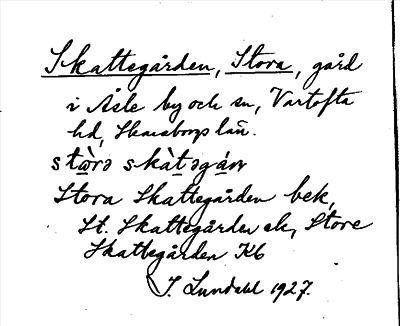 Skattegården, Stora, gård
i Åsle by och sn, Vartofta
hd, Skaraborgs län.
stɷ̀rə skàt̠əgán
Stora Skattegården bek,
St. Skattegården ek, Store
Skattegården Kb
I. Lundahl 1927.